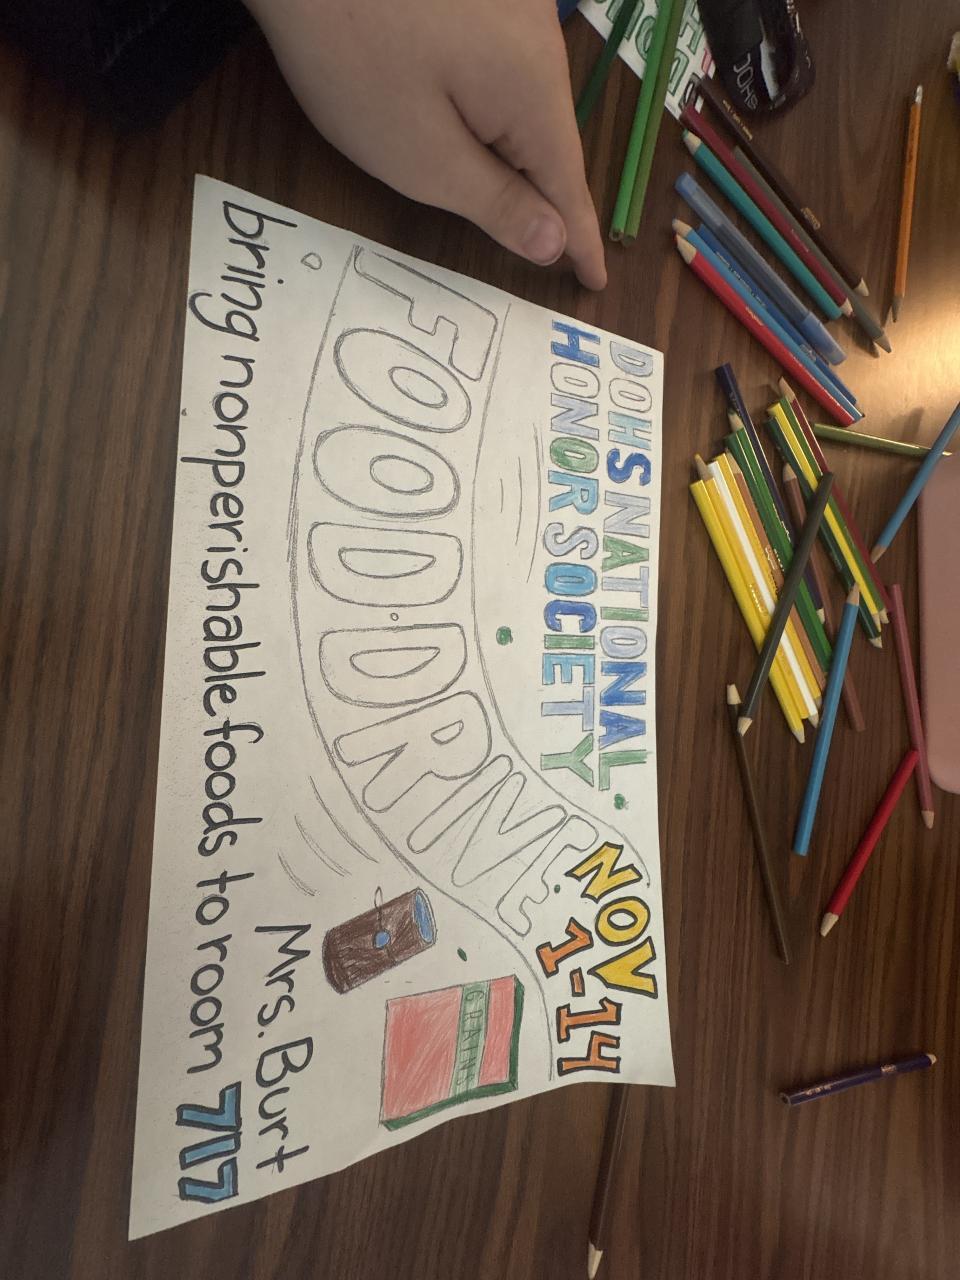 DOHS NATIONAL
HONOR SOCIETY
NOV
1-14
FOOD DRIVE
GRAINS
Mrs. Burt
bring nonperishable foods to room 717